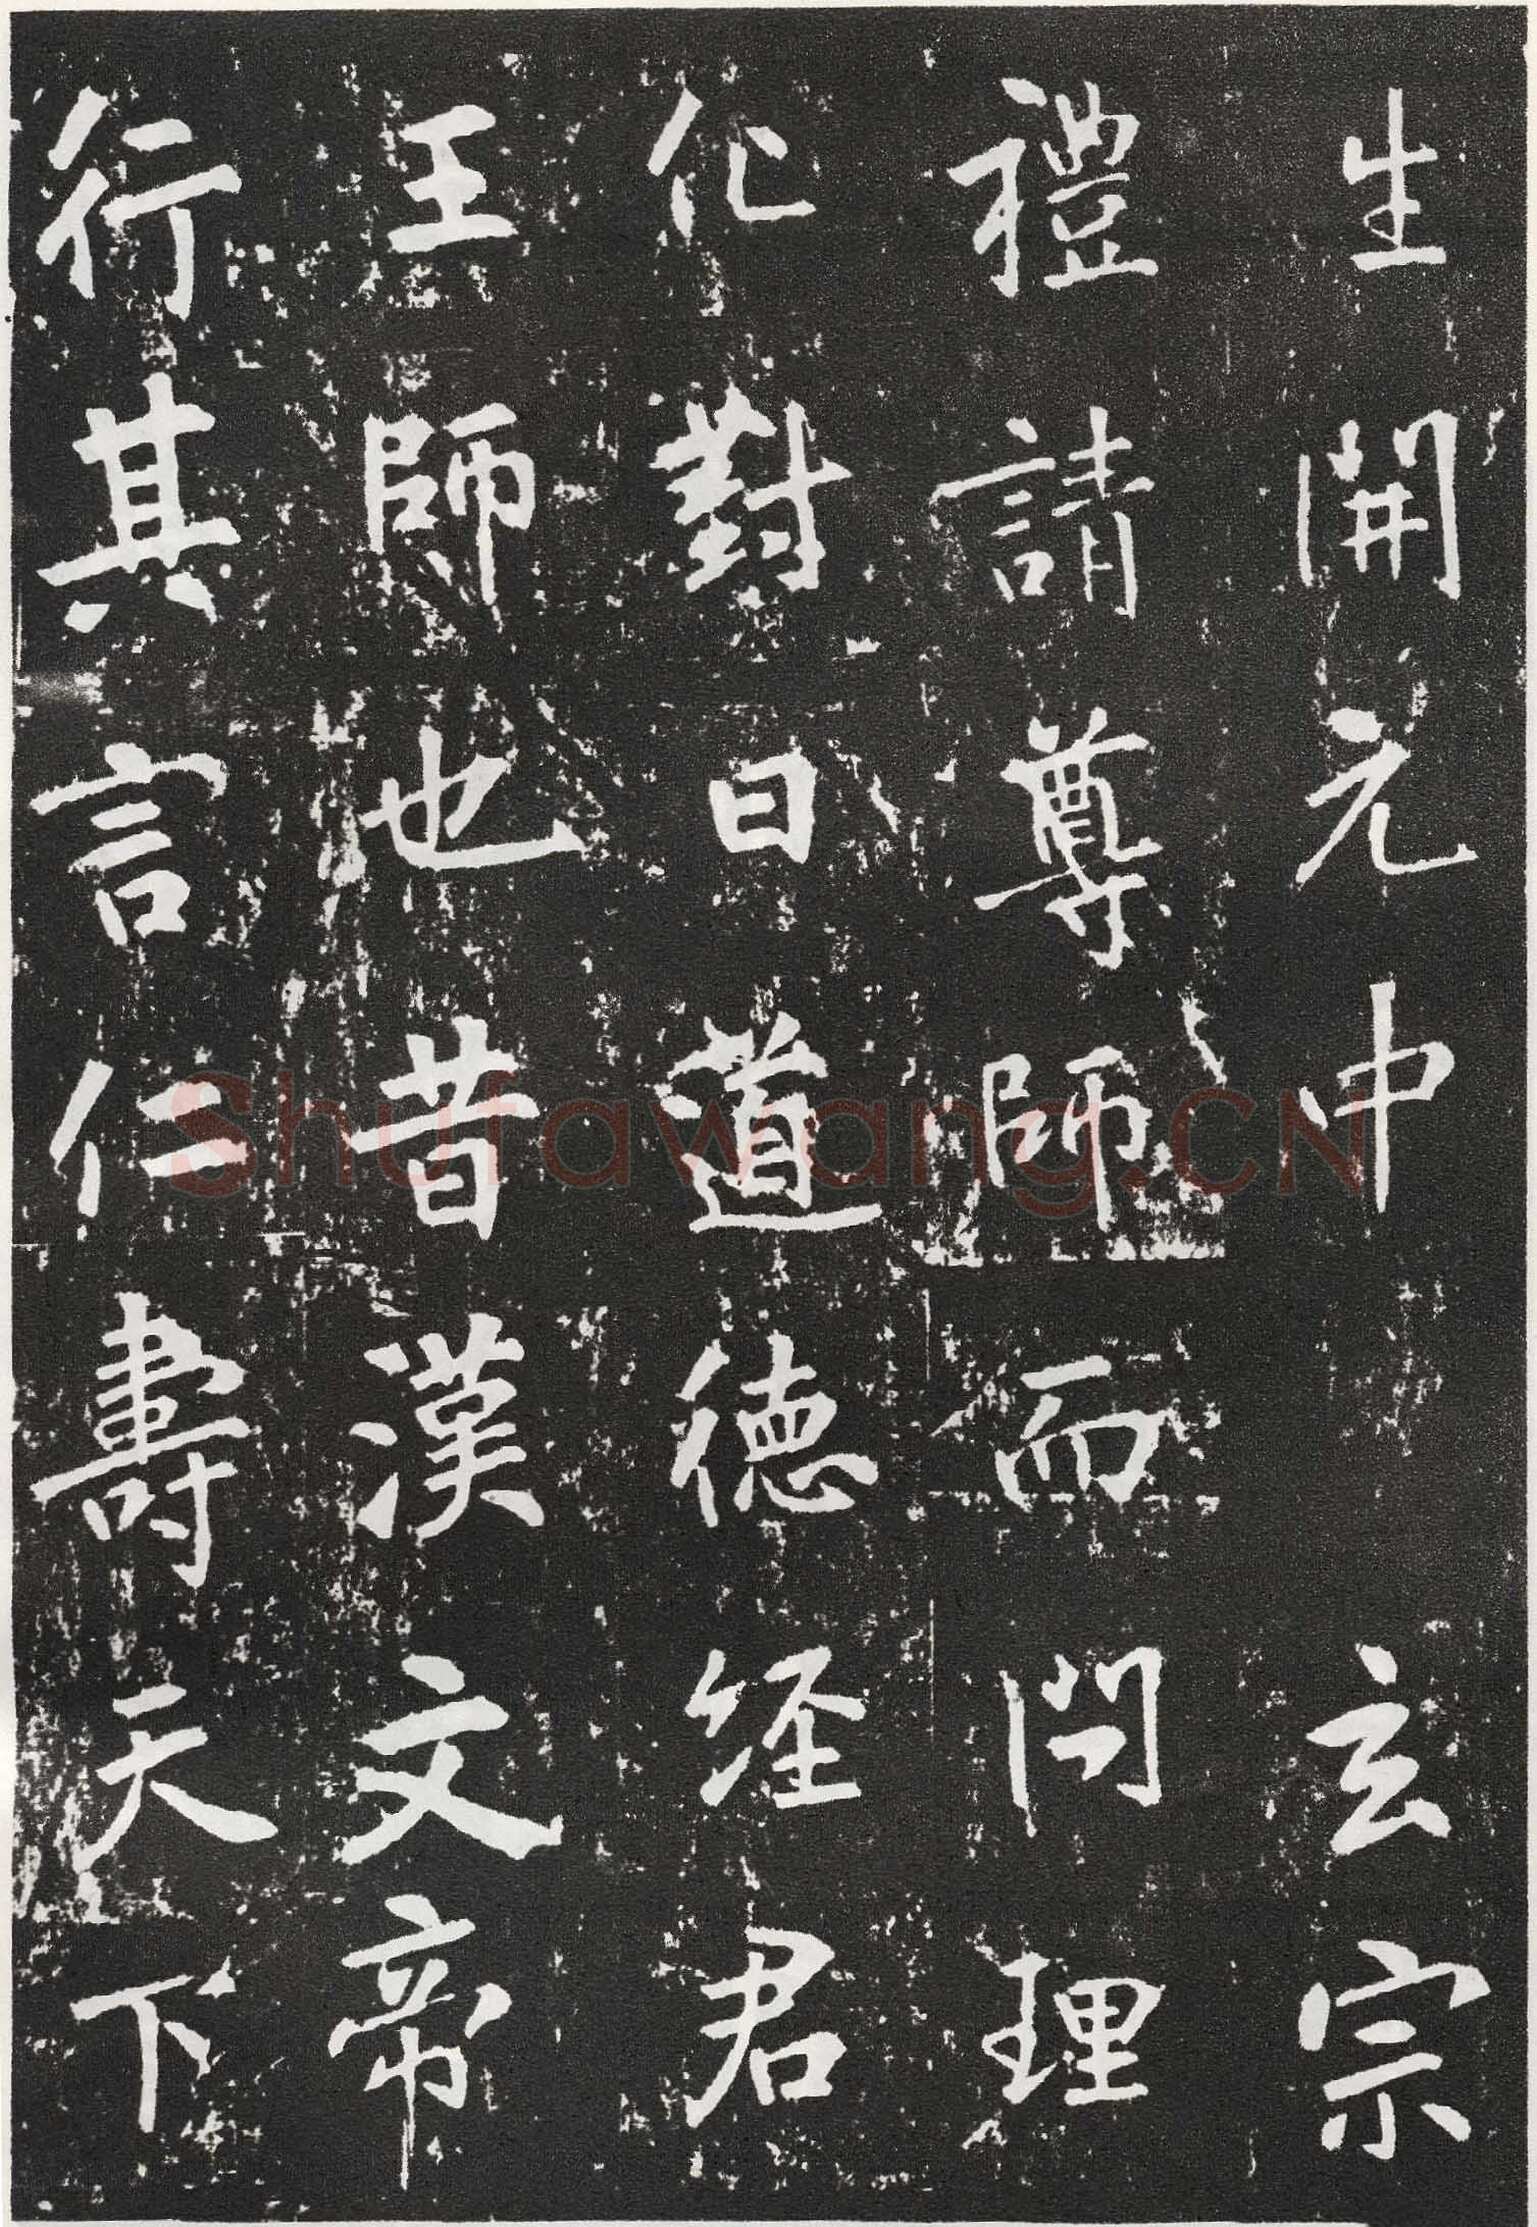 生開元中玄宗
禮請尊師而問理
化對曰道德経君
王師也昔漢文帝
行其言仁壽天下
Shufawang.CN